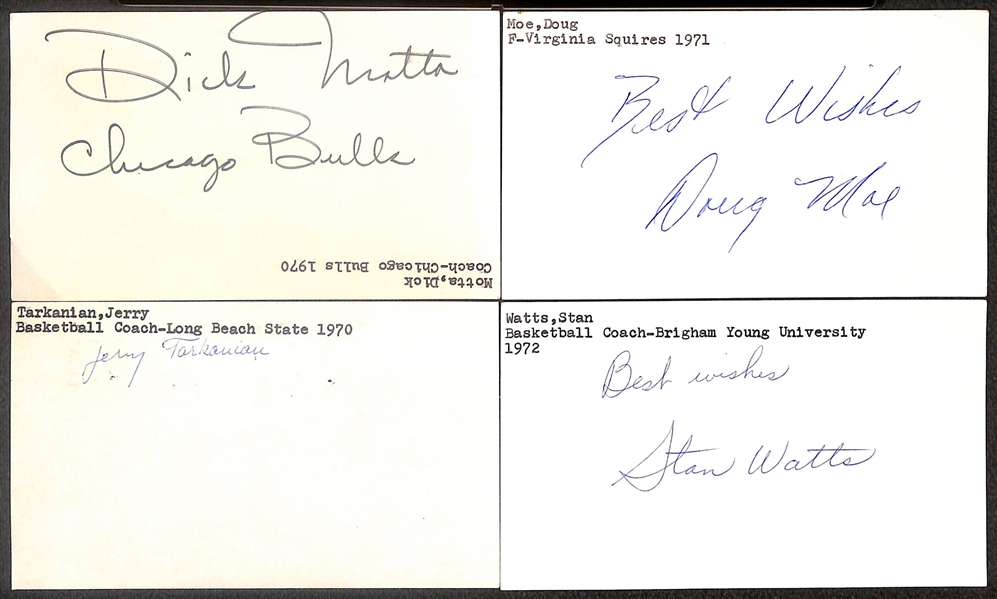 Dick Motta
Chicago Bulls
Motta,Dick
Coach-Chicago Bulls 1970
Moe,Doug
F-Virginia Squires 1971
Best Wishes
Doug Moe
Tarkanian,Jerry
Basketball Coach-Long Beach State 1970
Jerry Tarkanian
Watts,Stan
Basketball Coach-Brigham Young University
1972
Best wishes
Stan Watts